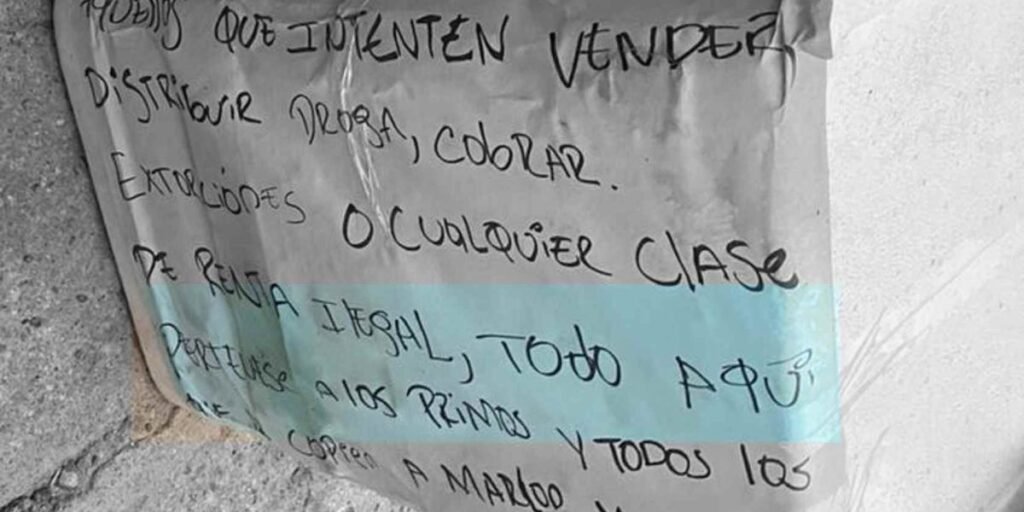 QUE INTENTEN VENDER,
DISTRIBUIR DROGA, COBRAR.
EXTORCIÓNES O CUALQUIER CLASE
DE RENTA ILEGAL, TODO AQUÍ
PERTENESE A LOS PRIMOS Y TODOS LOS
A MARLOO